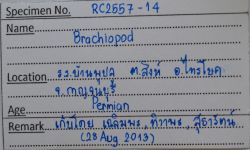 Specimen No. RC2557-14
Name
Brachiopod
Location ร.ร.บ้านพุปลู ต.สิงห์ อ.ไทรโยค
จ.กาญจนบุรี
Age Permian
Remark เก็บโดย เฉลิมพร, ทิวาพร, สุธารัตน์
(28 Aug 2013)